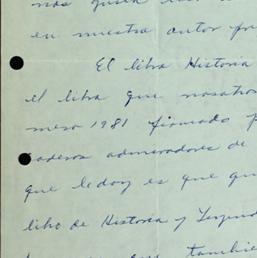 nos gusta
en nuestro autor
El libro Historia
el libro que nosotros
mero 1981 firmado
aderos admiradores de
que le doy es que que
libo de Historia y Leyend
tambie